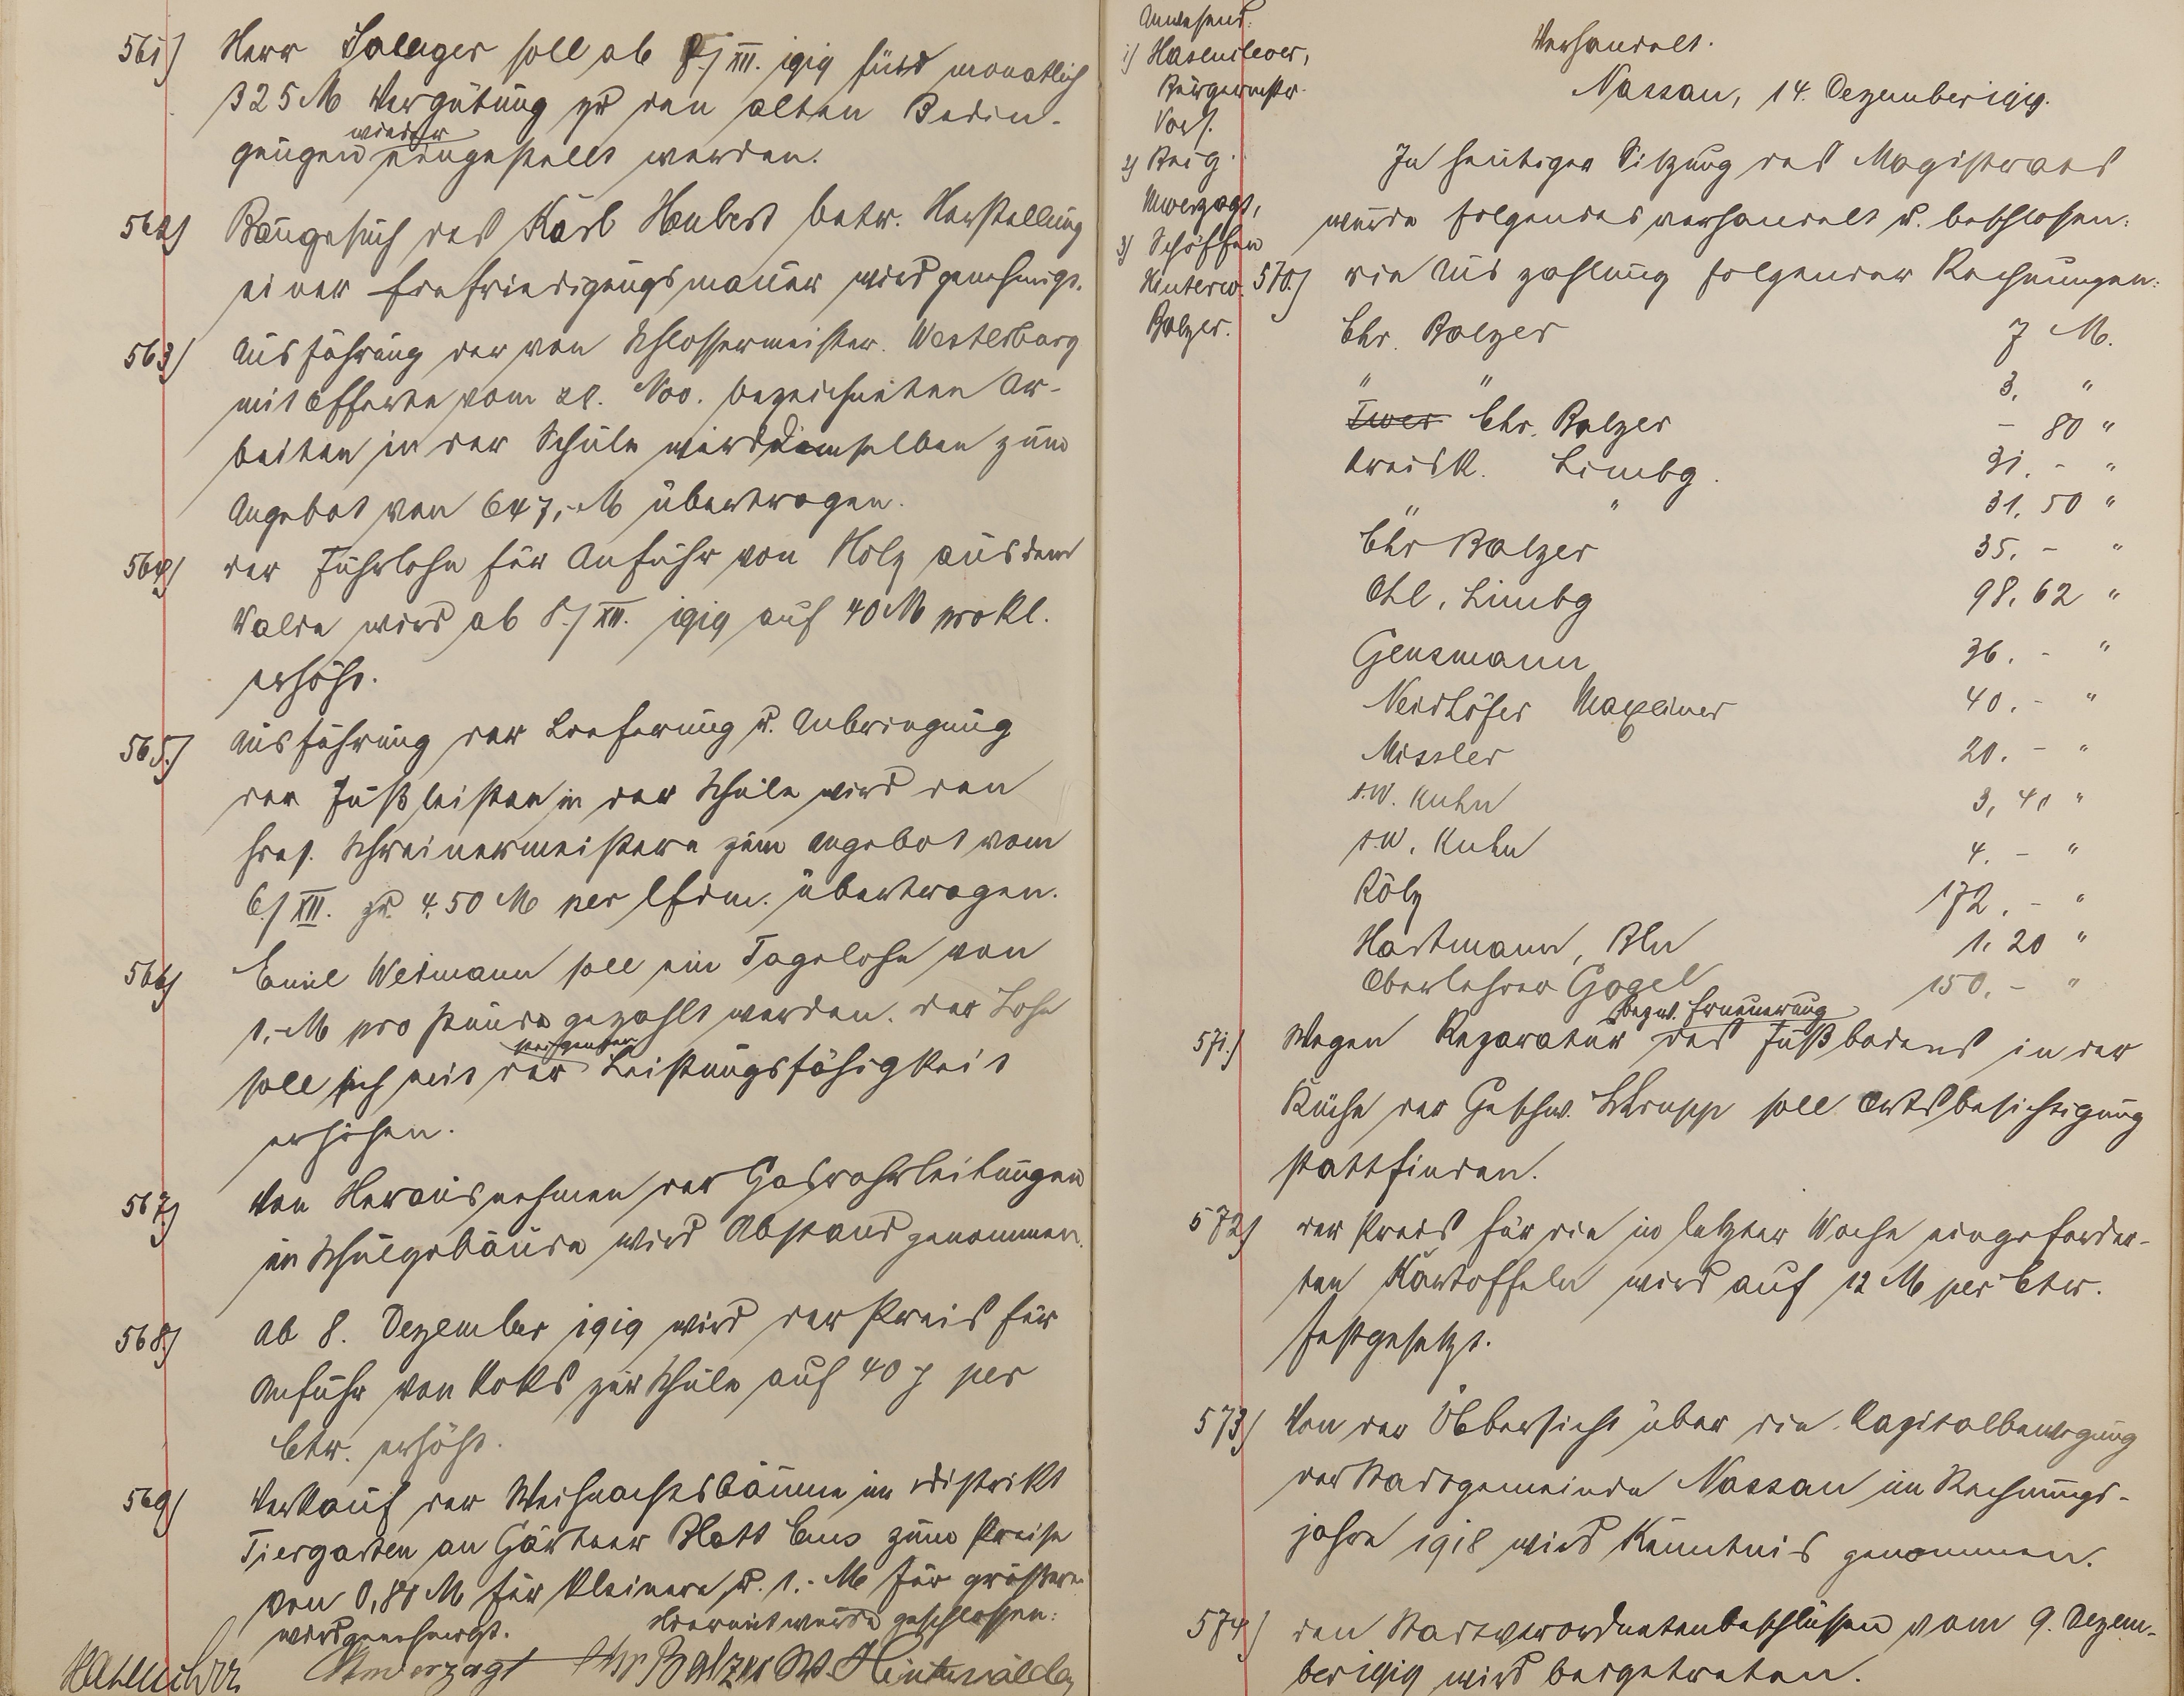 561) Herr Salager soll ab 8./XII. 1919 fürs monatlich
325 M Vergütung zu den alten Bedin-
wieder
gungen eingestellt werden.
562) Baugesuch des Karl Haubert betr. Herstellung
einer Einfriedigungsmauer wird genehmigt.
563) Ausführung der von Schlossermeister Westerburg
mit Offerte vom 28. Nov. bezeichneten Ar-
beiten in der Schule wird demselben zum
Angebot von 647,- M übertragen.
564) der Fuhrlohn für Anfuhr von Holz aus dem
Walde wird ab 8./XII. 1919 auf 40 M pro Kl.
erhöht.
565.) Ausführung der Lieferung u. Anbringung
der Fußleisten in der Schule wird den
hies. Schreinermeistern zum Angebot vom
6./XII. zu 4,50 M per lfdm. übertragen.
566) Emil Weimann soll ein Tagelohn von
1.- M pro Stunde gezahlt werden. Der Lohn
steigenden
soll sich mit der Leistungsfähigkeit
erhöhen.
567) Von Herausnehmen der Gasrohrleitungen
im Schulgebäude wird Abstand genommen.
568) Ab 8. Dezember 1919 wird der Preis für
Anfuhr von Koks zur Schule auf 40 ₰ per
Ctr. erhöht.
569) Verkauf der Weihnachtsbäume im Distrikt
Tiergarten an Gärtner Blatt Ems zum Preise
von 0,80 M für kleinere u. 1.- M für größere
wird genehmigt. Hiermit wurde geschlossen:
Hasenclever Unverzagt Chr Balzer W. Hinterwälder
Anwesend:
1) Hasenclever,
Bürgermstr.
Vors.
2) Beig.
Unverzagt,
3) Schöffen
Hinterw.
Balzer.
Verhandelt.
Nassau, 14. Dezember 1919.
In heutiger Sitzung des Magistrats
wurde folgendes verhandelt u. beschlossen:
570.) die Auszahlung folgender Rechnungen:
Chr. Balzer 7 M.
" " 3. "
Chr. Balzer - 80 "
Kreisk. Limbg. 31. - "
" " 31. 50 "
Chr Balzer 35. - "
Ohl, Limbg 98. 62 "
Gensmann 36. - "
Neidhöfer Maxeiner 40. - "
Missler 20. - "
A.W. Kuhn 3, 40 "
A.W. Kuhn 4. - "
Kölz 172. - "
Hartmann, Bln 1. 20 "
Oberlehrer Gogel 150. - "
bezw. Erneuerung
571.) Wegen Reparatur des Fußbodens in der
Küche der Geschw. Schrupp soll Ortsbesichtigung
stattfinden.
572) der Preis für die in letzter Woche eingeforder-
ten Kartoffeln wird auf 12 M per Ctr.
festgesetzt.
573) Von der Übersicht über die Kapitalbewegung
der Stadtgemeinde Nassau im Rechnungs-
jahre 1918 wird Kenntnis genommen.
574) den Stadtverordnetenbeschlüssen vom 9. Dezem-
ber 1919 wird beigetreten.